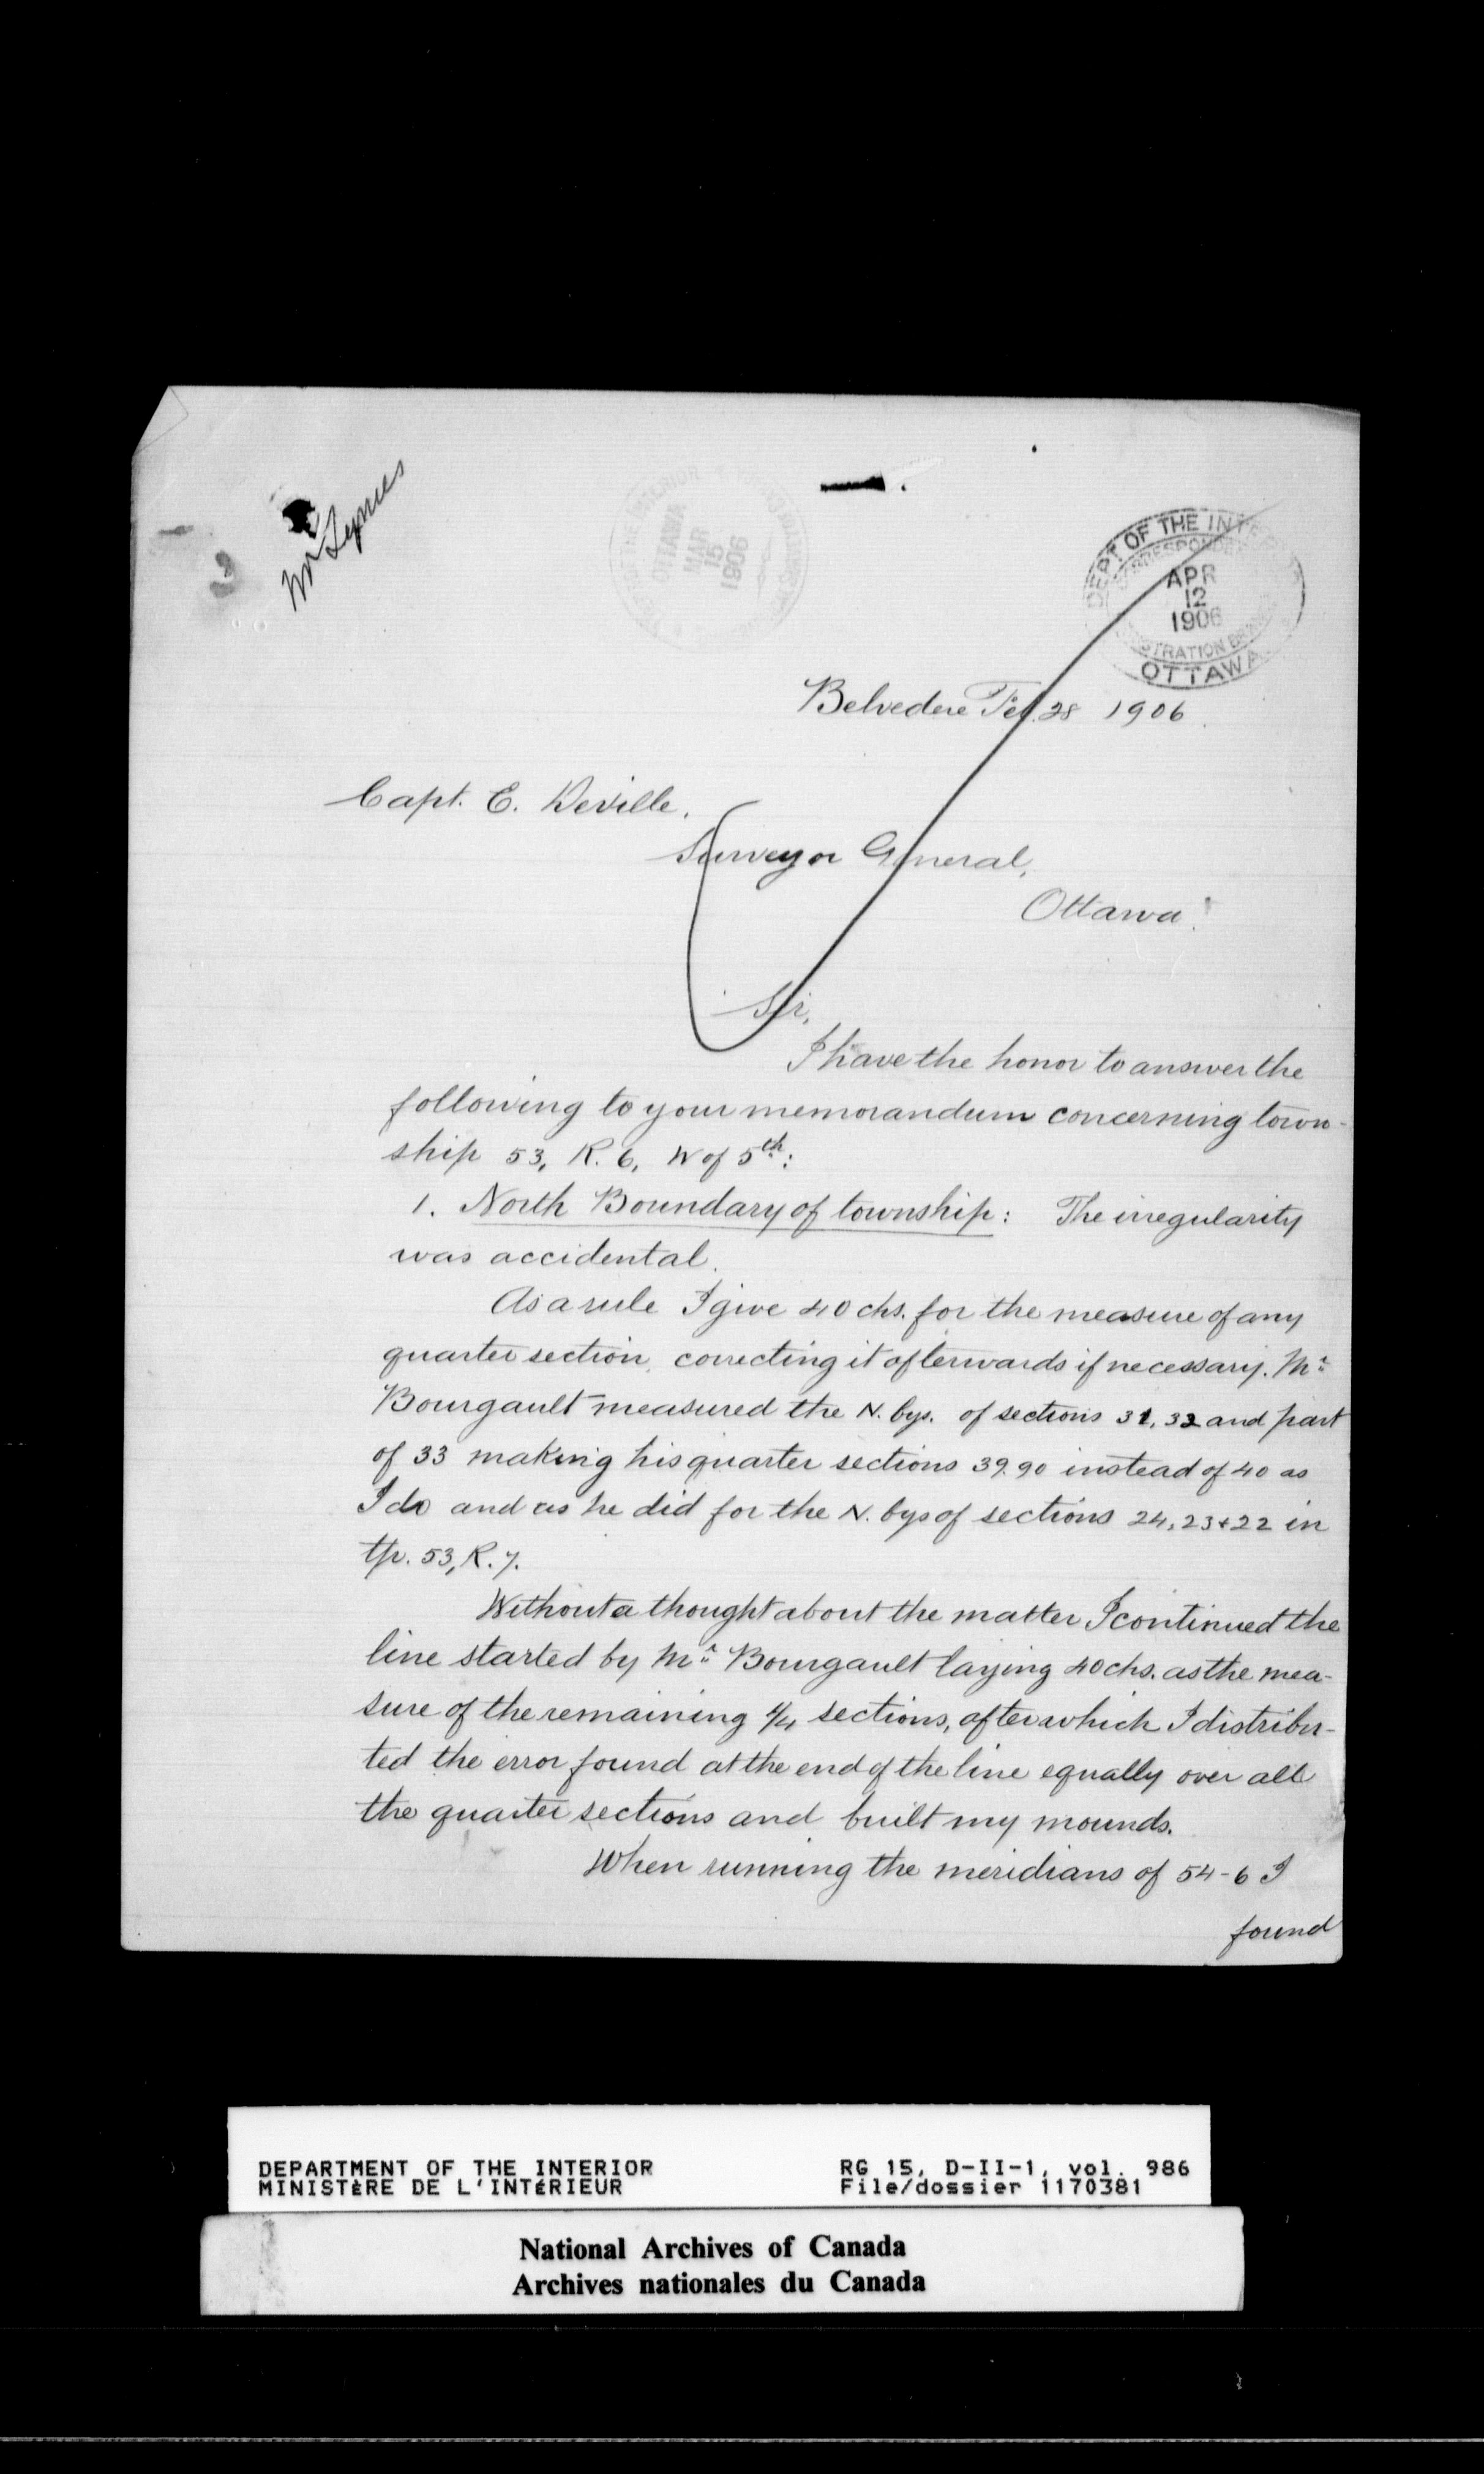 DEPT OF THE INTERIOR
OTTAWA
MAR
15
1906
DEPT OF THE INTE
CORRESPONDE
APR
12
1906
STRATION BR
OTTAWA
Belvedere Feb. 28 1906.
Capt. E. Deville,
Surveyor General,
Ottawa.
Sir,
I have the honor to answer the
following to your memorandum concerning town-
ship 53, R. 6, W of 5th:
1. North Boundary of township: The irregularity
was accidental.
As a rule I give 40 chs. for the measure of any
quarter section, correcting it afterwards if necessary. Mr
Bourgault measured the N. bys. of sections 31, 32 and part
of 33 making his quarter sections 39.90 instead of 40 as
I do and as he did for the N. bys of sections 24, 23 + 22 in
tp. 53, R. 7.
Without a thought about the matter I continued the
line started by Mr Bourgault laying 40 chs. as the mea-
sure of the remaining 1/4 sections, after which I distribu-
ted the error found at the end of the line equally over all
the quarter sections and built my mounds.
When running the meridians of 54-6 I
found
DEPARTMENT OF THE INTERIOR
MINISTÈRE DE L'INTÉRIEUR
RG 15, D-II-1, vol. 986
File/dossier 1170381
National Archives of Canada
Archives nationales du Canada